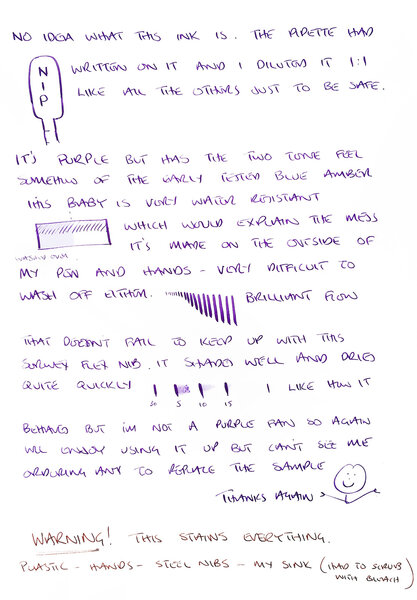 NO IDEA WHAT THIS INK IS. THE PIPETTE HAD
NIP
WRITTEN ON IT AND I DILUTED IT 1:1
LIKE ALL THE OTHERS JUST TO BE SAFE.
IT'S PURPLE BUT HAS THE TWO TONE FEEL
SOMEHOW OF THE EARLY TESTED BLUE AMBER
THIS BABY IS VERY WATER RESISTANT
WHICH WOULD EXPLAIN THE MESS
WASH OVER
IT'S MADE ON THE OUTSIDE OF
MY PEN AND HANDS - VERY DIFFICULT TO
WASH OFF EITHER. BRILLIANT FLOW
THAT DOESN'T FAIL TO KEEP UP WITH THIS
FLEX NIB. IT SHADES WELL AND DRIED
QUITE QUICKLY I LIKE HOW IT
5 10 15
BEHAVED BUT I'M NOT A PURPLE FAN SO AGAIN
WILL ENJOY USING IT UP BUT CAN'T SEE ME
ORDURING ANY TO REPLACE THE SAMPLE
THANKS AGAIN
WARNING! THIS STAINS EVERYTHING.
PLASTIC - HANDS - STEEL NIBS - MY SINK (HAD TO SCRUB
WITH BLEACH)